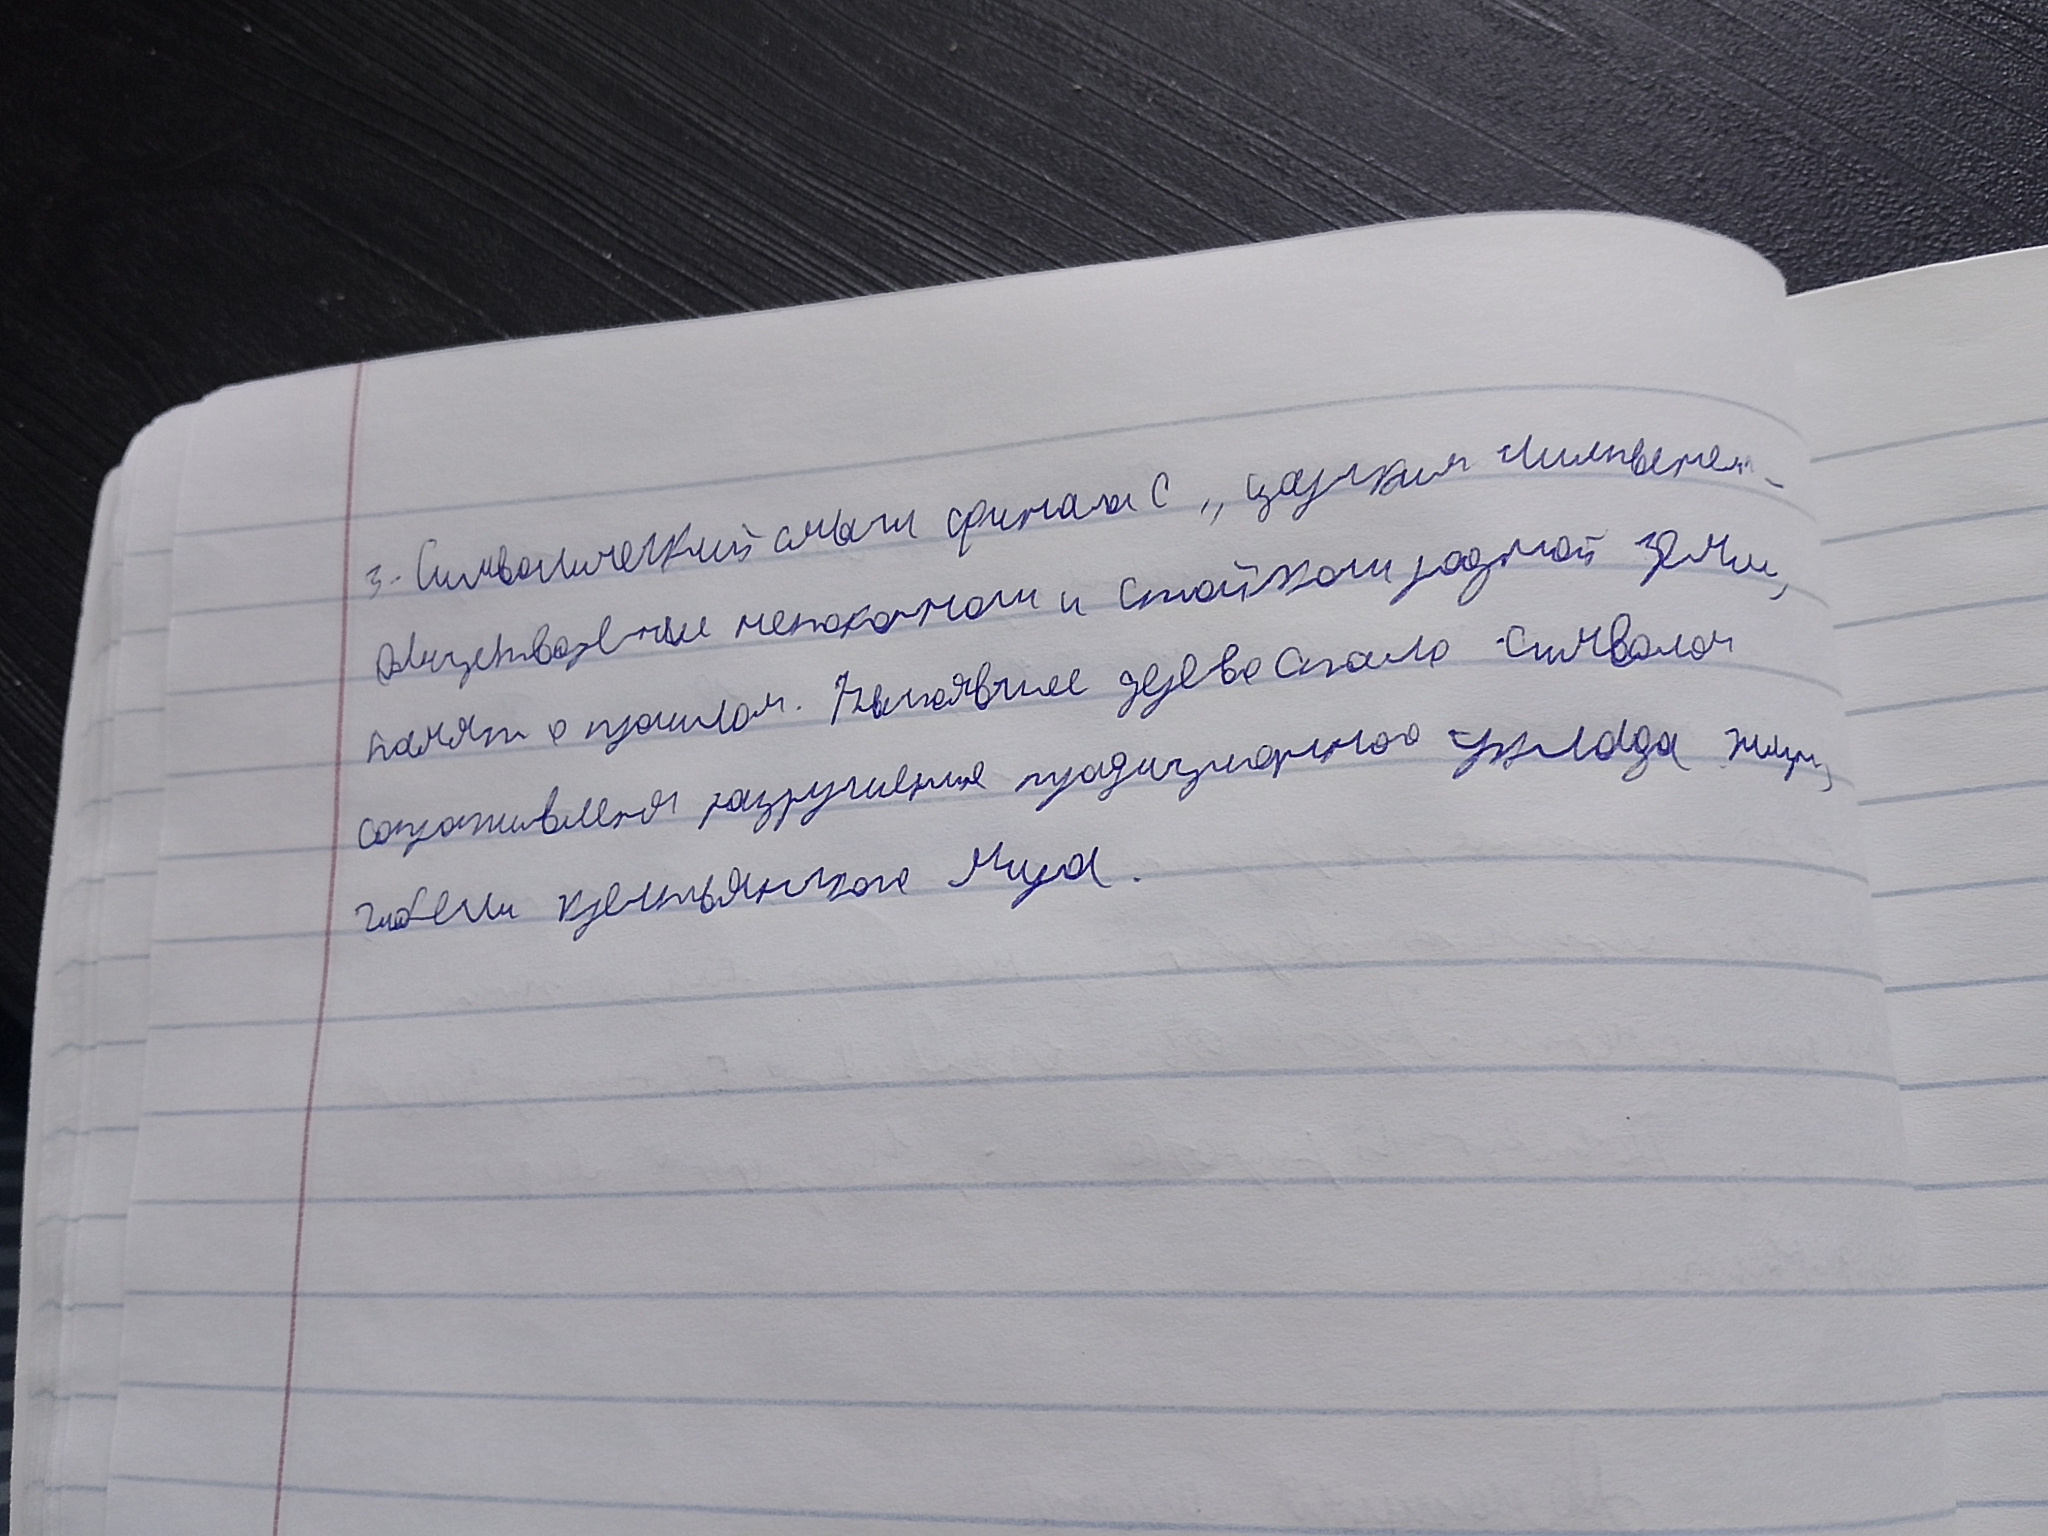 3. Символический смысл финала с „царским лиственем-
олицетворение непокорности и стойкости родной земли,
память о прошлом. Устоявшее дерево стало символом
сопротивления разрушению традиционного уклада жизни,
гибели крестьянского мира.